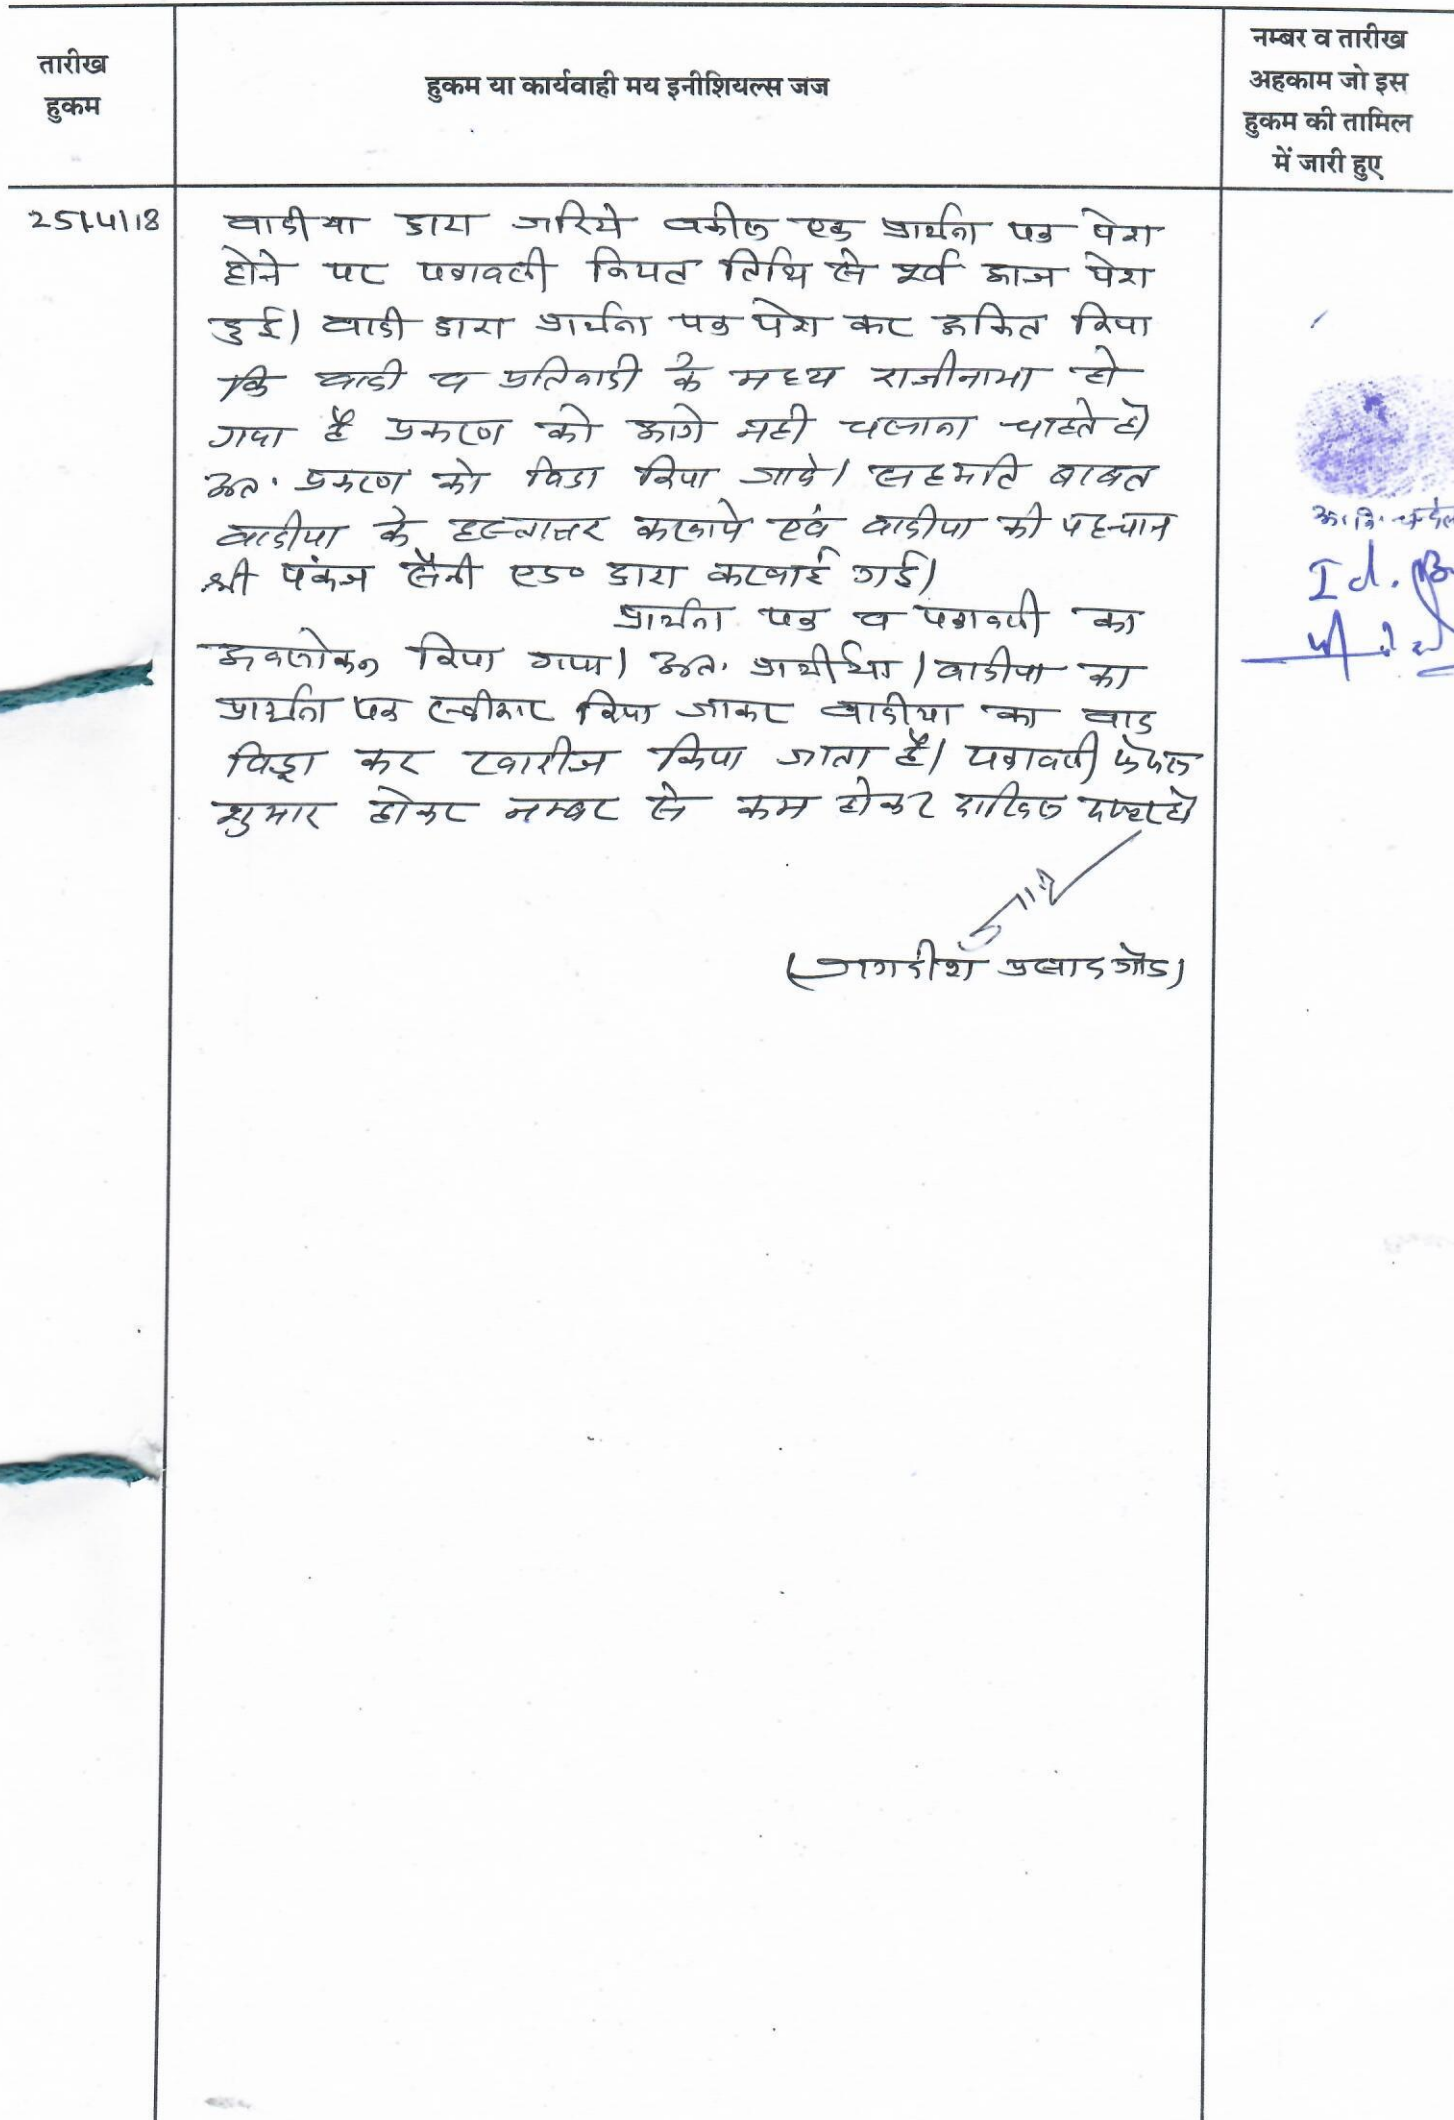 तारीख
हुकम
हुकम या कार्यवाही मय इनीशियल्स जज
नम्बर व तारीख
अहकाम जो इस
हुकम की तामिल
में जारी हुए
25/4/18
वादीया द्वारा जरिये वकील एक प्रार्थना पत्र पेश
होने पर पत्रावली नियत तिथि से पूर्व आज पेश
हुई। वादी द्वारा प्रार्थना पत्र पेश कर अंकित किया
कि वादी व प्रतिवादी के मध्य राजीनामा हो
गया है प्रकरण को आगे नही चलाना चाहते है।
अत. प्रकरण को विड्रा किया जावे। सहमति बाबत
वादीया के हस्ताक्षर करवाये एवं वादीया की पहचान
श्री पंकज सैनी एड० द्वारा करवाई गई।
प्रार्थना पत्र व पत्रावली का
अवलोकन किया गया। अत. प्रार्थीया / वादीया का
प्रार्थना पत्र स्वीकार किया जाकर वादीया का वाद
विड्रा कर खारीज किया जाता है। पत्रावली फैसल
शुमार होकर नम्बर से कम होकर दाखिल दफ्तर हो
(जगदीश प्रसाद गौड)
Id.